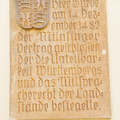 Hier wurde
am 14. Dez
ember 1482
der Münsinger
Vertrag geschlossen
der die Unteilbar-
keit Württembergs
und das Mitspra-
cherecht der Land-
stände besiegelte.